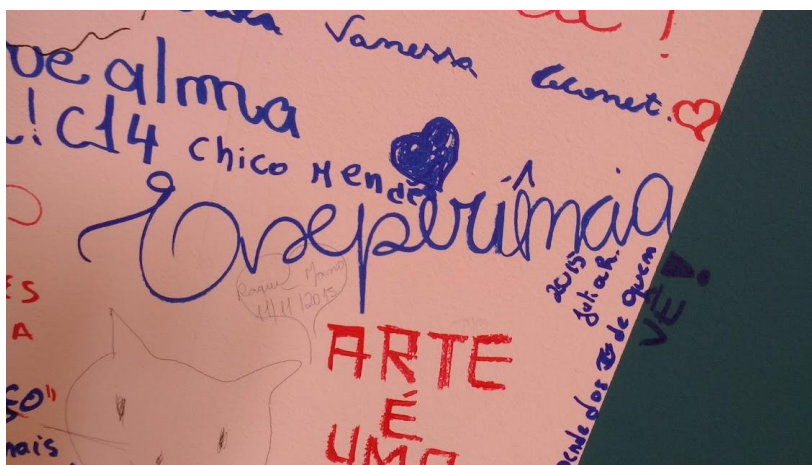 Vanessa
ve alma
! C14 Chico Mendes
Experiência
Raquel
11/11/2015
2015
Julia R.
ende dos de quem
VÊ!
ES
A
ARTE
É
UMA
ÇO"
mais